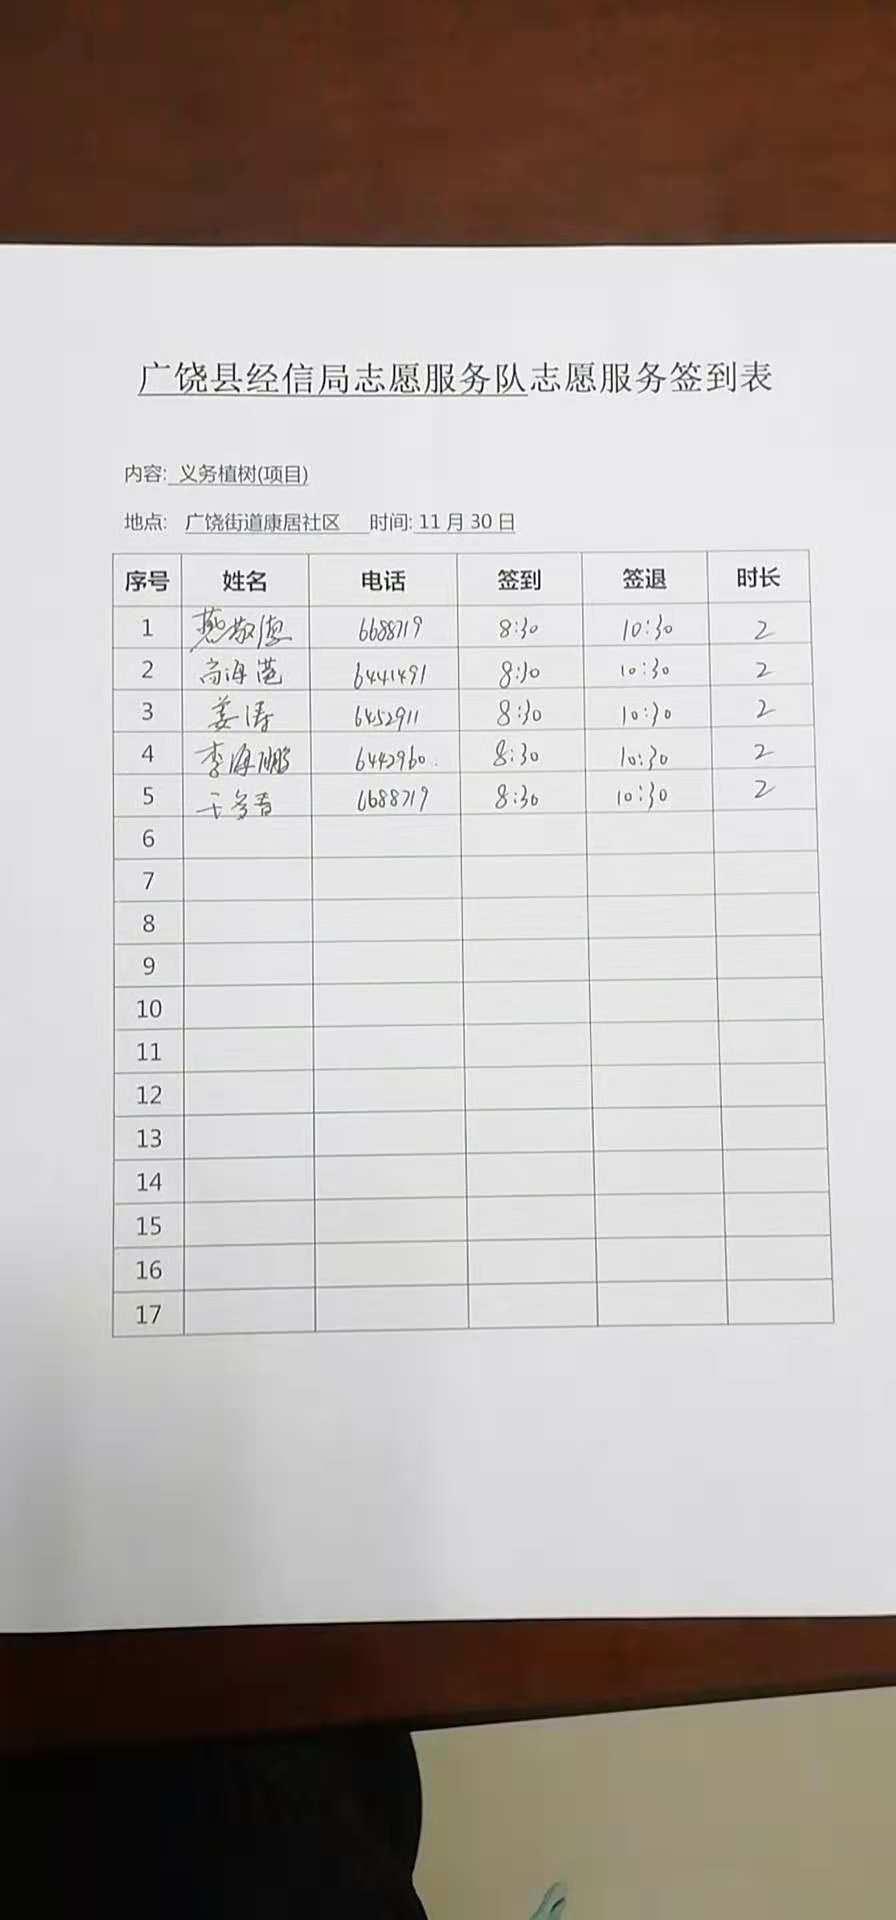 广饶县经信局志愿服务队志愿服务签到表
内容: 义务植树(项目)
地点: 广饶街道康居社区 时间: 11月30日
序号 姓名 电话 签到 签退 时长
1 燕敬德 6688719 8:30 10:30 2
2 高海港 6441491 8:30 10:30 2
3 姜涛 6452911 8:30 10:30 2
4 李海鹏 6442960 8:30 10:30 2
5 6688719 8:30 10:30 2
6
7
8
9
10
11
12
13
14
15
16
17